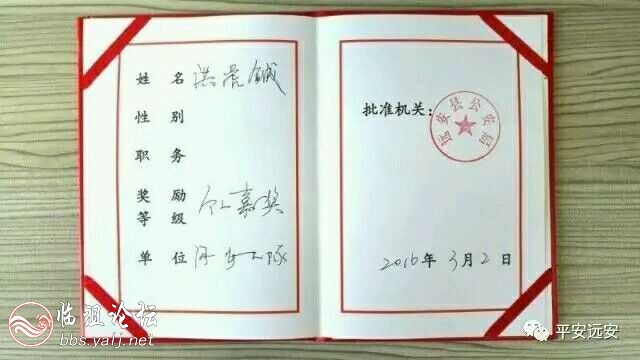 姓 名
性 别
职 务
奖 励
等 级 个人嘉奖
单 位
批准机关：
远安县公安局
2016年3月2日
临沮论坛
bbs.yalj.net
平安远安